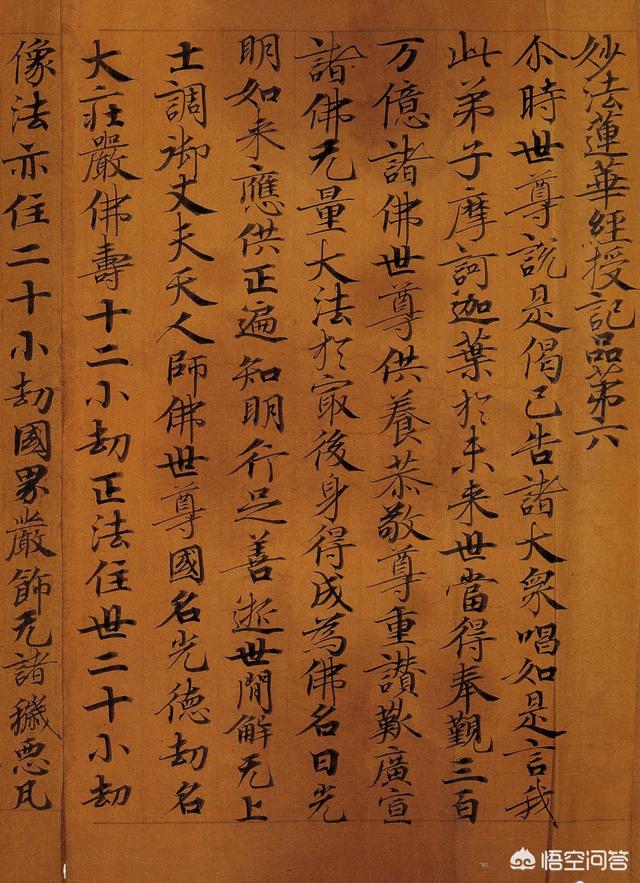 妙法蓮華經授記品苐六
尒時世尊說是偈已告諸大眾唱如是言我
此弟子摩訶迦葉於未来世當得奉覲三百
万億諸佛世尊供養恭敬尊重讚歎廣宣
諸佛无量大法於冣後身得成為佛名曰光
明如来應供正遍知明行足善逝世間解无上
士調御丈夫天人師佛世尊國名光德劫名
大莊嚴佛壽十二小劫正法住世二十小劫
像法亦住二十小劫國界嚴飾无諸穢惡凡
悟空问答